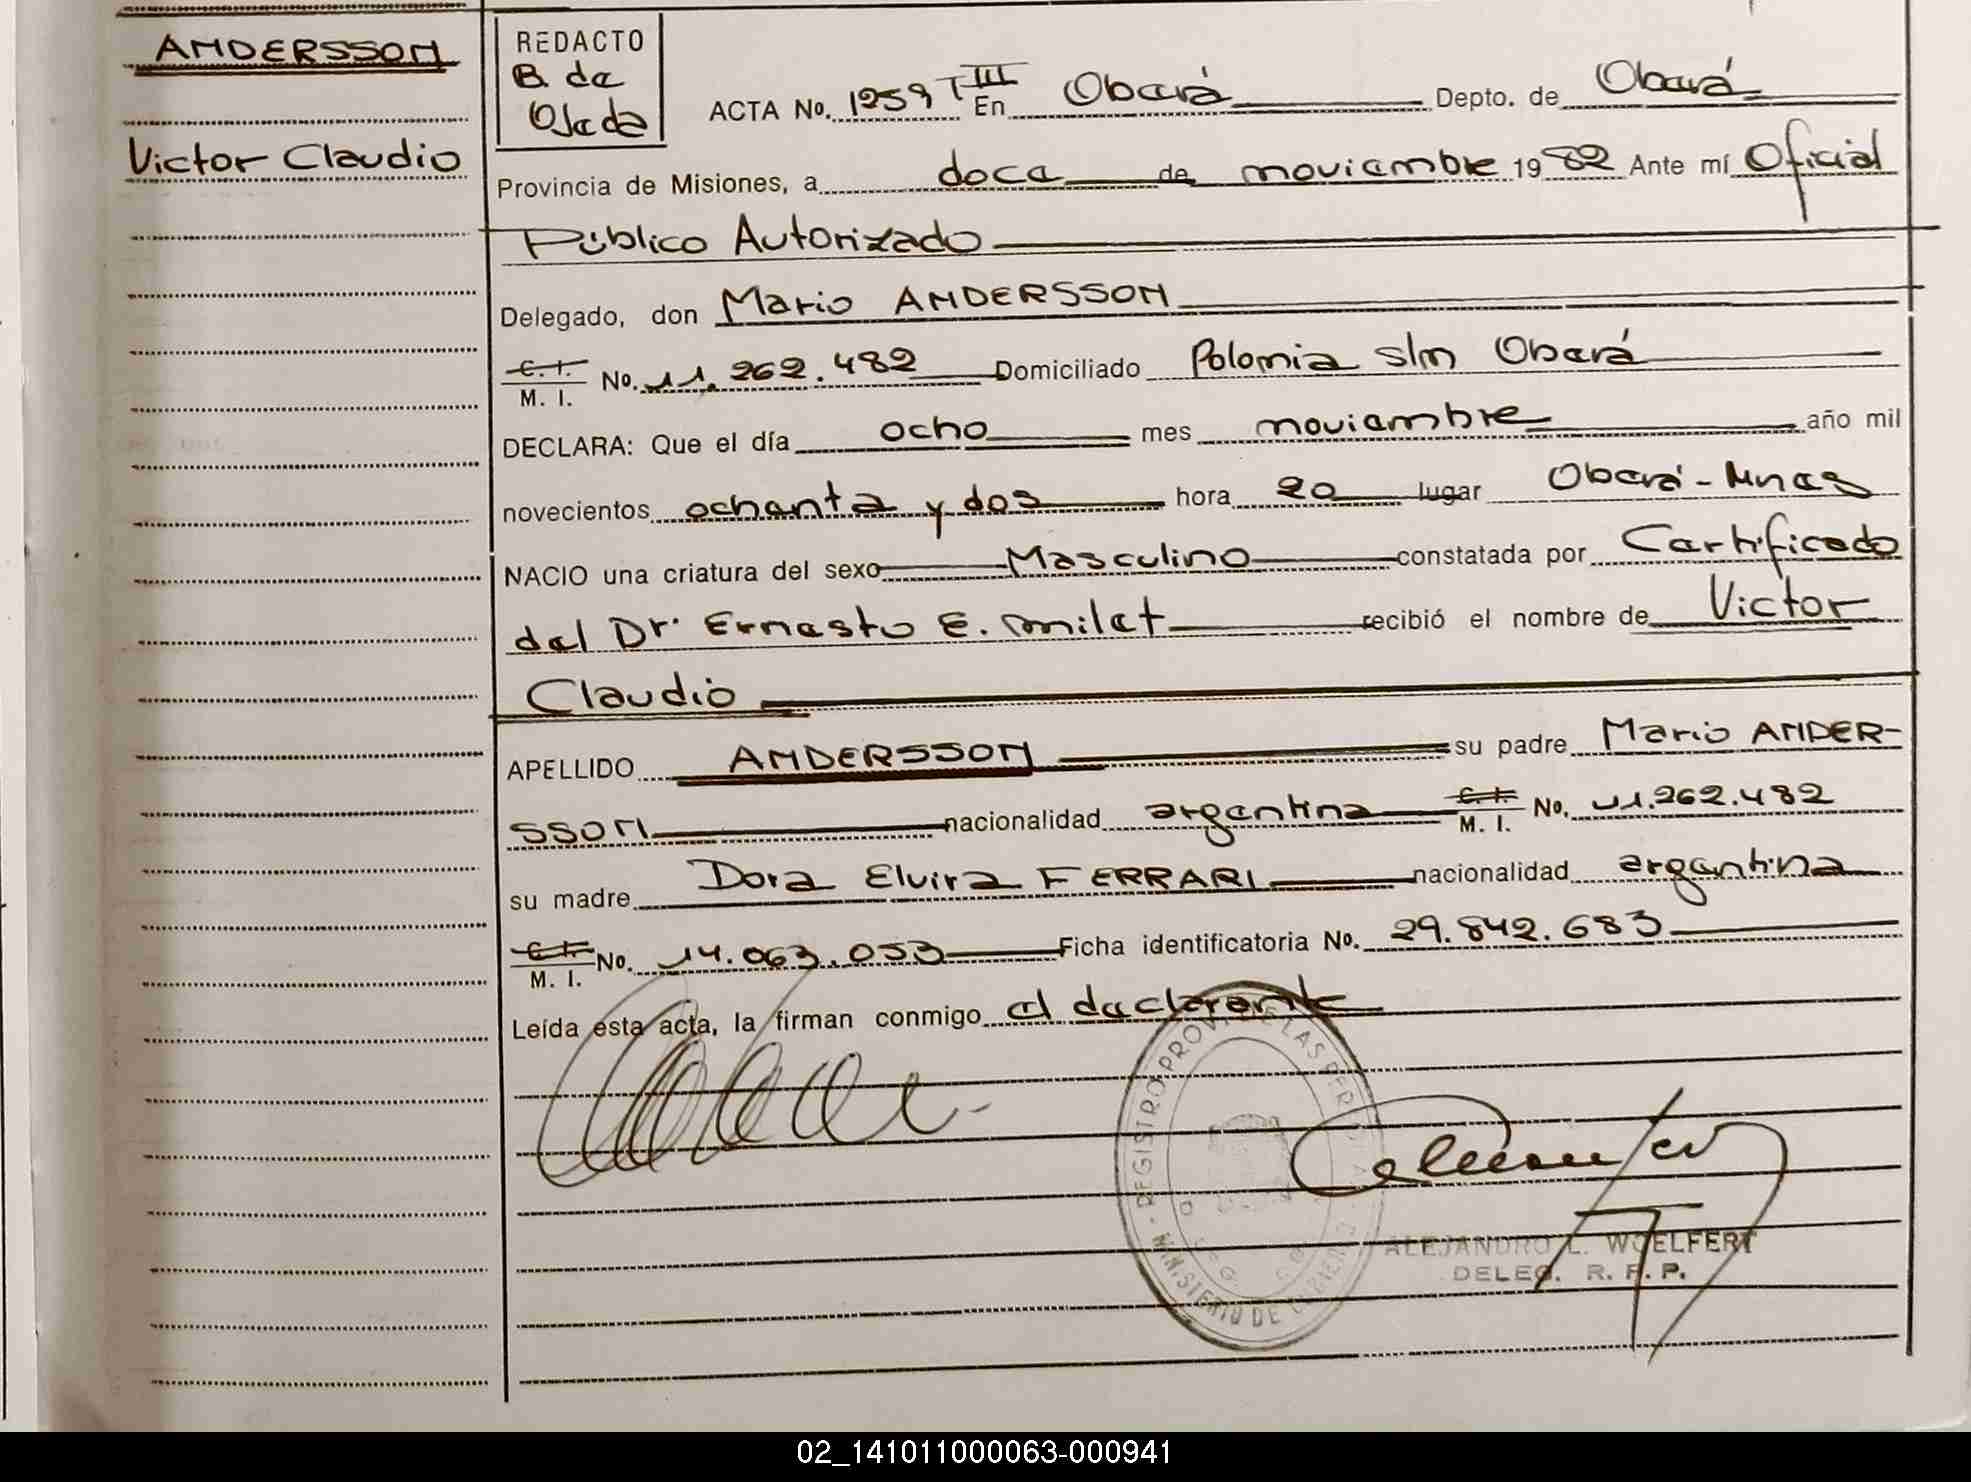 ANDERSSON
Victor Claudio
REDACTO
B. de
Ojeda
ACTA No. 1259 T III En Oberá Depto. de Oberá
Provincia de Misiones, a doce de noviembre 1982 Ante mí Oficial
Público Autorizado
Delegado, don Mario ANDERSSON
C. I.
M. I. No. 11.262.482 Domiciliado Polonia s/n Oberá
DECLARA: Que el día ocho mes noviembre año mil
novecientos ochenta y dos hora 20 lugar Oberá - Mnes
NACIO una criatura del sexo Masculino constatada por Certificado
del Dr. Ernesto E. Milet recibió el nombre de Victor
Claudio
APELLIDO ANDERSSON su padre Mario ANDER-
SSON nacionalidad argentina C. I. M. I. No. 11.262.482
su madre Dora Elvira FERRARI nacionalidad argentina
C. I.
M. I. No. 14.063.053 Ficha identificatoria No. 29.842.683
Leída esta acta, la firman conmigo el declarente
REGISTRO PROV. DE LAS PER
MINISTERIO DE
ALEJANDRO L. WOELFERT
DELEG. R. P. P.
02_141011000063-000941